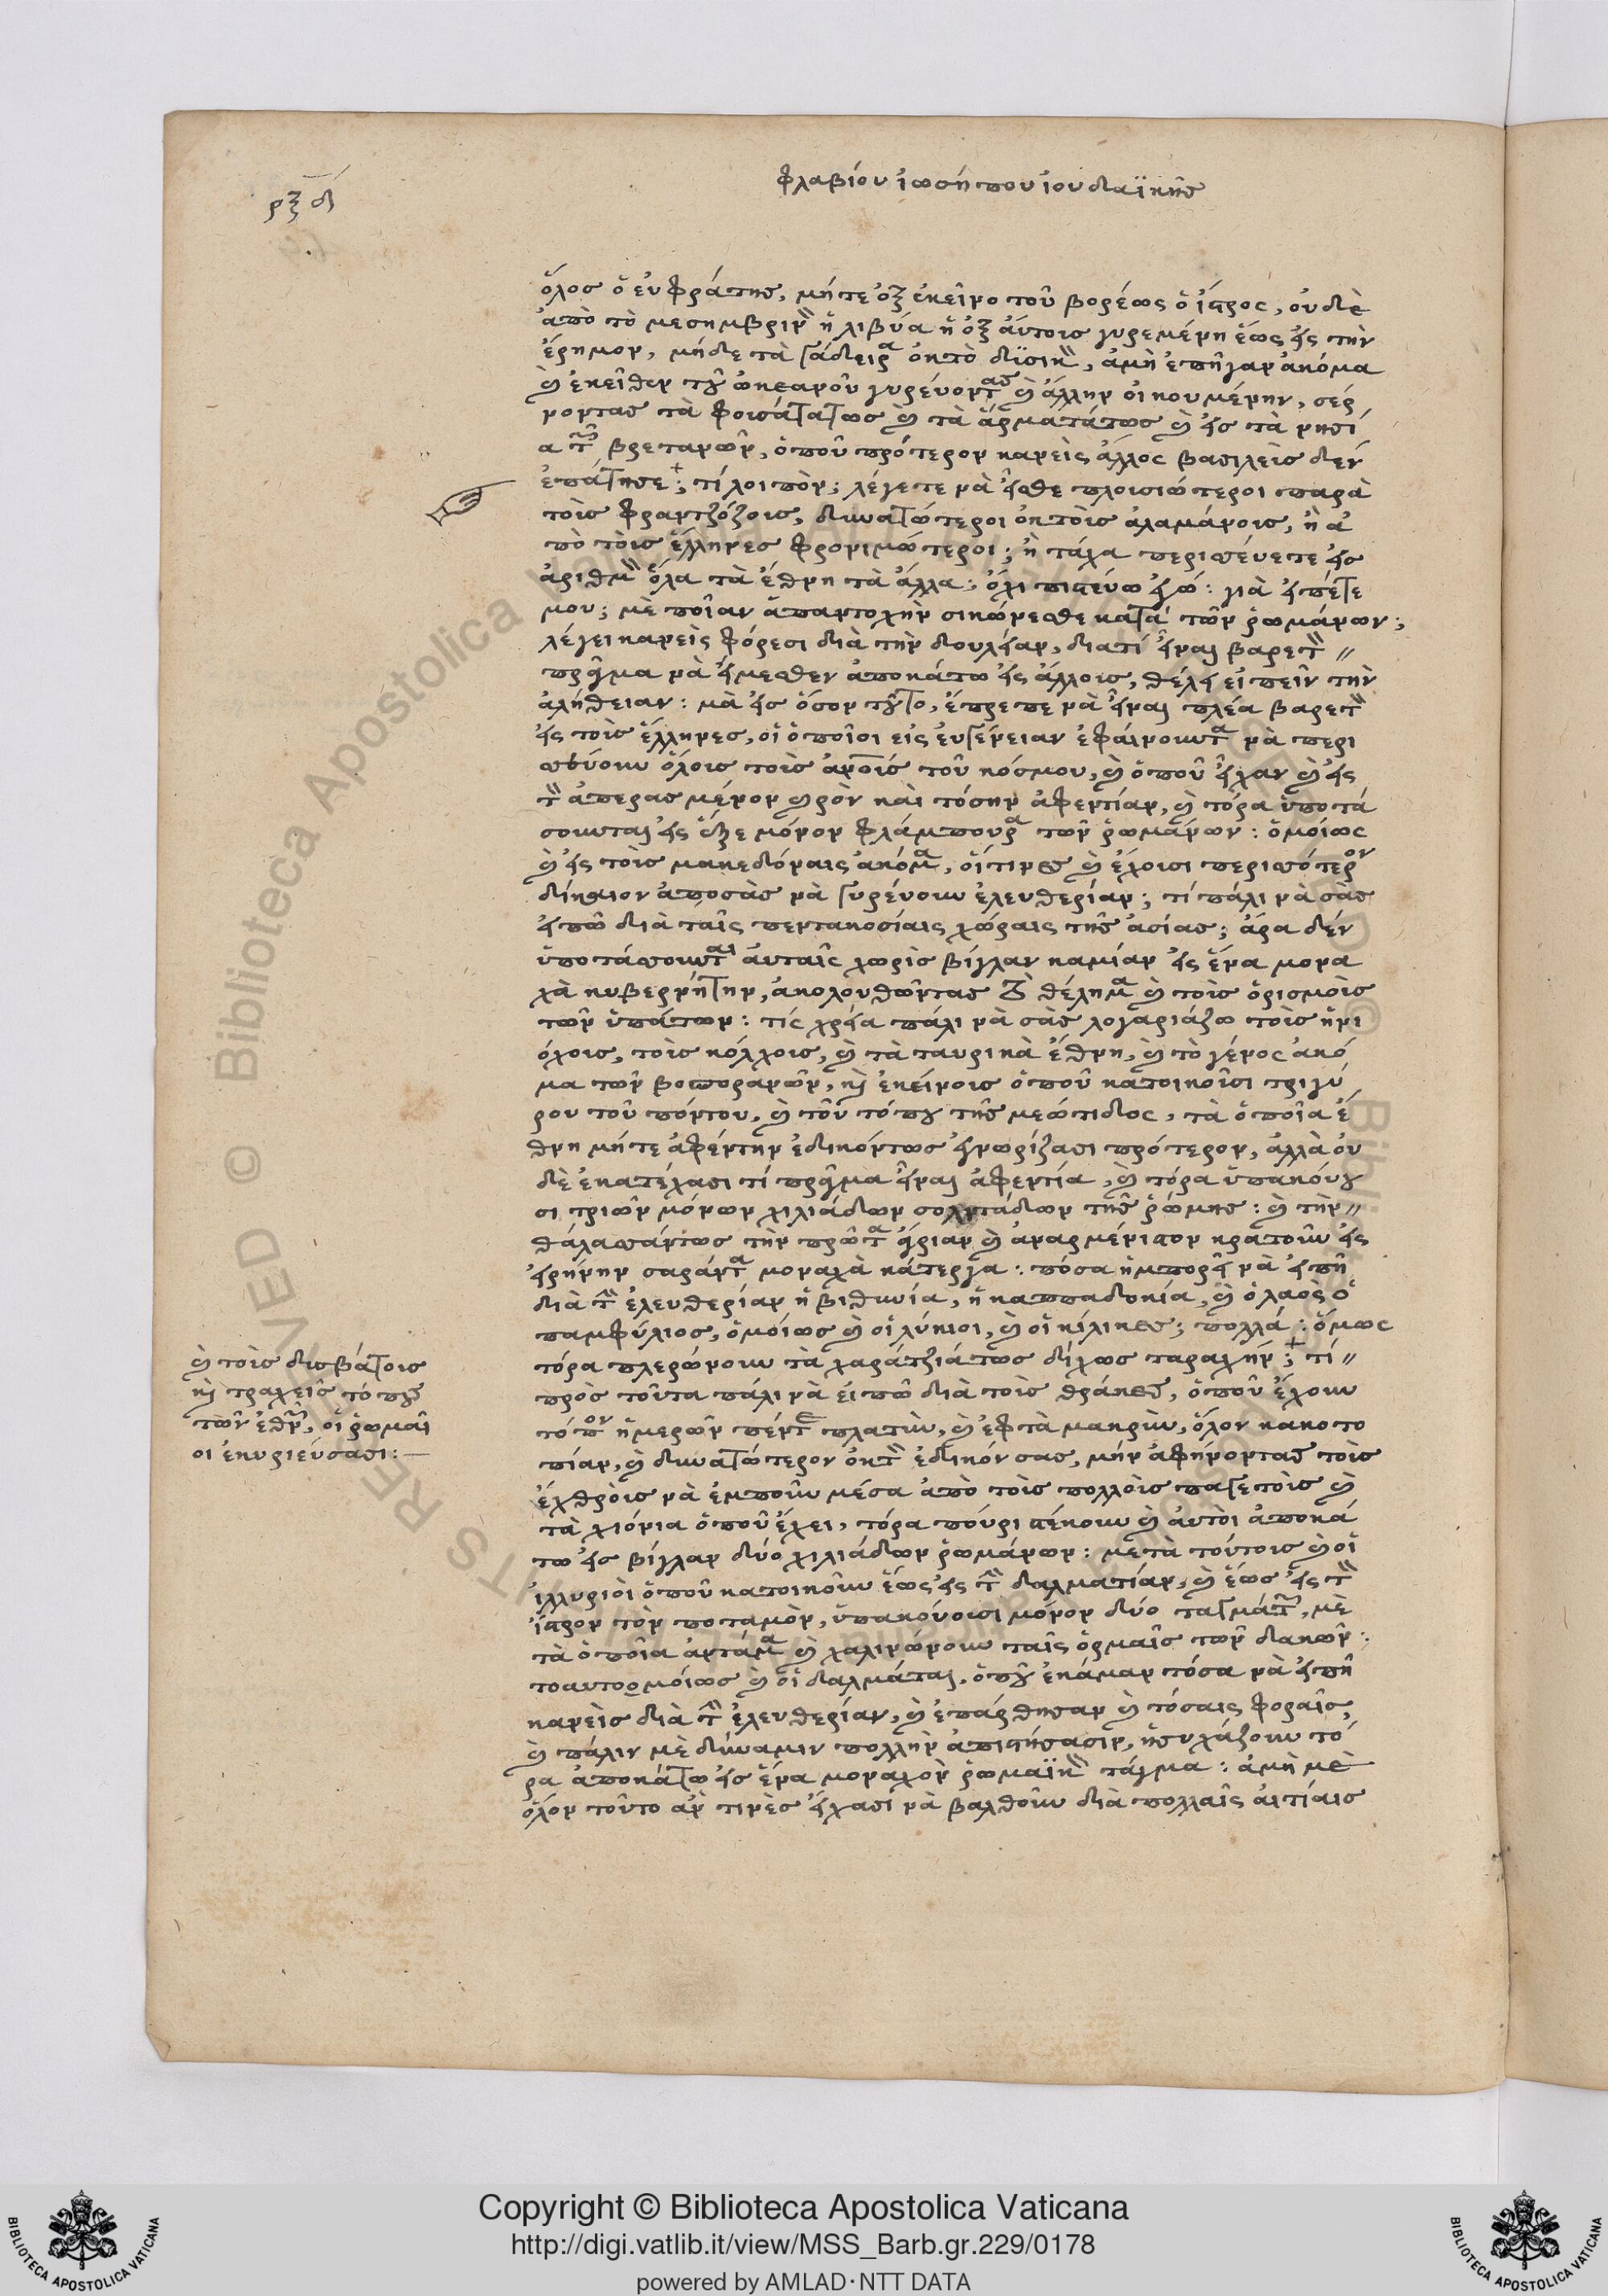 ρξδ
φλαβίου ἰωσήπου ἰουδαϊκῆς
ὅλος ὁ ευφράτης, μήτε ὀξ ἐκεῖνο τοῦ βορέως ὁ ἴστρος, οὐδὲ
ἀπὸ τὸ μεσημβρινὸν ἡ λιβύα ἡ ὀξ αὔτοις γυρεμένη ἕως εἰς τὴν
ἔρημον, μήδε τὰ γάδειρα ὀκτὸ δϊσικὸν, ἀμὴ ἐπῆγαν ἀκόμα
καὶ ἐκεῖθεν τοῦ ὠκεανοῦ γυρεύοντας καὶ ἄλλην οἰκουμένην, σέρ
νοντας τὰ φοισάτατως καὶ τὰ ἄρματάτως καὶ εἰς τὰ νησί
α τῶν βρετανῶν, ὁποῦ πρότερον κανεὶς ἄλλος βασιλεὶς δεν
ἐπάτησε; τί λοιπὸν; λέγετε νὰ εἶσθε πλοισιώτεροι παρὰ
τοὶς φραντζόζοις, δυνατώτεροι ὀκτοὶς ἀλαμάνοις, ἢ ἀ
πὸ τοὶς ἕλληνες φρονιμώτεροι; ἢ τάχα περισεύετε εἰς
ἀριθμὸν ὅλα τὰ ἔθνη τὰ ἄλλα; ὄχι πιστεύω ἐγώ: γιὰ εἰπέτε
μου; μὲ ποῖαν ἀπαντοχὴν σικώνεσθε κατὰ τῶν ῥωμάνων;
λέγει κανεὶς φόρεσι διὰ τὴν δουλείαν, διατί εἶναι βαρετὸν
πρᾶγμα νὰ εἴμεσθεν ἀποκάτω εἰς ἄλλοις, θέλει εἰπεῖν τὴν
ἀλήθειαν: μὰ εἰς ὅσον τοῦτο, ἔπρεπε νὰ εἶναι πλέα βαρετὸν
εἰς τοὶς ἕλληνες, οἱ ὁποῖοι εἰς ευγένειαν ἐφαίνουντα νὰ περι
σεύουν ὅλοις τοὶς ἀνοῖς τοῦ κόσμου, καὶ ὁποῦ εἶχαν καὶ εἰς
σουνται εἰς ἕξε μόνον φλάμπουρα τῶν ῥωμάνων: ὁμοίως
καὶ εἰς τοὶς μακεδόναις ἀκόμα, οἵτινες καὶ ἔχοισι περισότερον
δίκαιον ἀποσὰς νὰ γυρεύουν ἐλευθερίαν; τί πάλι νὰ σὰς
εἰπῶ διὰ ταῖς πεντακοσίαις χώραις τῆς ἀσίας; ἄρα δὲν
ὑποτάσουνται αὐταῖς χωρὶς βίγλαν καμίαν εἰς ἕνα μονα
χὰ κυβερνήτην, ἀκολουθῶντας τὸ θέλημα καὶ τοὶς ὁρισμοὶς
τῶν ὑπάτων: τίς χρεία πάλι νὰ σὰς λογαριάζω τοὶς ἡνι
όχοις, τοὶς κόλχοις, καὶ τὰ ταυρικὰ ἔθνη, καὶ τὸ γένος ἀκό
μα τῶν βοσποραρῶν, καὶ ἐκείνοις ὁποῦ κατοικοῖσι τριγύ
ρου τοῦ πόντου, καὶ τοῦ τόπου τῆς μεώτιδος, τὰ ὁποῖα ἔ
θνη μήτε ἀφέντην ἐδικόντως ἐγνωρίζασι πρότερον, ἀλλὰ οὐ
δὲ ἐκατέχασι τί πρᾶγμα εἶναι ἀφεντία, καὶ τόρα ὑπακούου
σι τριῶν μόνων χιλιάδων σολντάδων τῆς ῥώμης: καὶ τὴν
θάλασάντως τὴν πρῶτα ἄγριαν καὶ ἀναρμένιστον κρατοῦν εἰς
εἰρήνην σαράντα μοναχὰ κάτεργα: πόσα ἠμπορεῖ νὰ εἰπῆ
διὰ τὴν ἐλευθερίαν ἡ βιθυνία, ἡ καππαδοκία, καὶ ὁ λαὸς ὁ
παμφύλιος, ὁμοίως καὶ οἱ λύκιοι, καὶ οἱ κίλικες; πολλά: ὅμως
τόρα πλερώνουν τὰ χαράτζιάτως δίχως ταραχήν; τί
πρὸς τοῦτα πάλι νὰ εἰπῶ διὰ τοὶς θράκες, ὁποῦ ἔχουν
τόπον ἡμερῶν πέντε πλατὺν, καὶ ἐφτὰ μακρὺν, ὅλον κακοτο
πίαν, καὶ δυνατώτερον ὀκτὸν ἐδικόν σας, μὴν ἀφήνοντας τοὶς
ἐχθροὶς νὰ ἐμποῦν μέσα ἀπὸ τοὶς πολλοὶς παγετοὶς καὶ
τὰ χιόνια ὁποῦ ἔχει, τόρα πούρι στέκουν καὶ αὐτοὶ ἀποκά
τω εἰς βίγλαν δύο χιλιάδων ῥωμάνων: μετὰ τούτοις καὶ οἱ
ἰλλυριοὶ ὁποῦ κατοικοῦν ἕως εἰς τὴν δαλματίαν, καὶ ἕως εἰς τὸν
ἴστρον τὸν ποταμὸν, ὑπακούοισι μόνον δύο ταγμάτων, μὲ
τὰ ὁποῖα ἀντάμα καὶ χαλινώνουν ταῖς ὁρμαῖς τῶν δακῶν:
τοαυτομοίως καὶ οἱ δαλμάται, ὁποῦ ἐκάμαν τόσα νὰ εἰπῆ
κανεὶς διὰ τὴν ἐλευθερίαν, καὶ ἐπάρθησαν καὶ τόσαις φοραῖς,
καὶ πάλιν μὲ δύναμιν πολλὴν ἀπιστήσασιν, ἡσυχάζουν τό
ρα ἀποκάτω εἰς ἕνα μοναχὸν ῥωμαϊκὸν τάγμα: ἀμὴ μὲ
ὅλον τοῦτο ἂν τινὲς εἴχασι νὰ βαλθοῦν διὰ πολλαῖς αἰτίαις
καὶ τοὶς δισβάτοις
καὶ τραχεῖς τόπους
τῶν ἐθνῶν, οἱ ῥωμαῖ
οι ἐκυριεύσασι:—
Copyright © Biblioteca Apostolica Vaticana
http://digi.vatlib.it/view/MSS_Barb.gr.229/0178
powered by AMLAD·NTT DATA
BIBLIOTECA APOSTOLICA VATICANA
BIBLIOTECA APOSTOLICA VATICANA